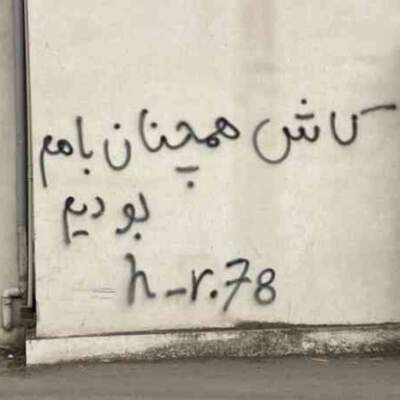 کاش همچنان باهم
بودیم
h_r.78